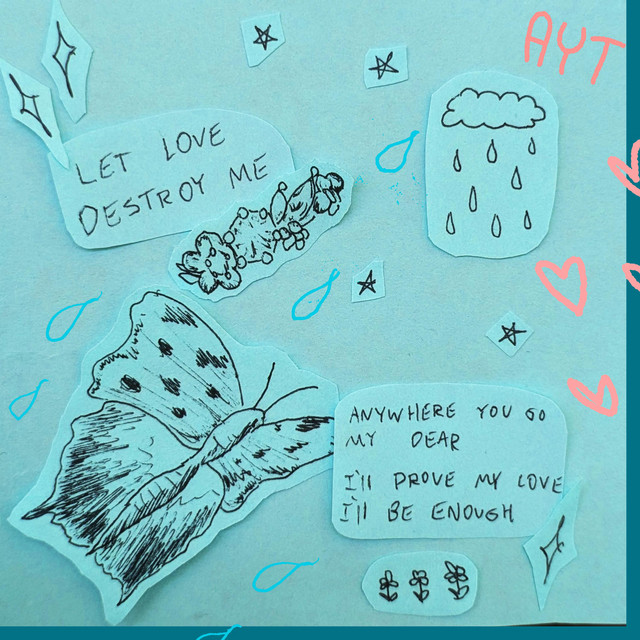 AYT
LET LOVE
DESTROY ME
ANYWHERE YOU GO
MY DEAR
I'll PROVE MY LOVE
I'll BE ENOUGH